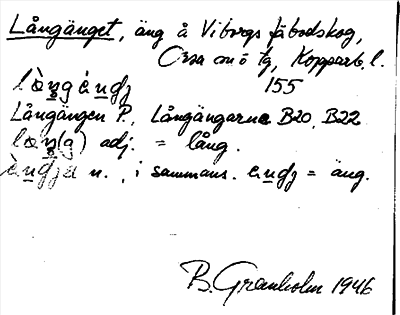 Långänget, äng å Viborgs fäbodskog,
Orsa snö tg, Kopparb. l.
155
Långängen P., Långängarna B20, B22
adj. = lång.
n., i sammans. = äng.
B. Granholm 1946